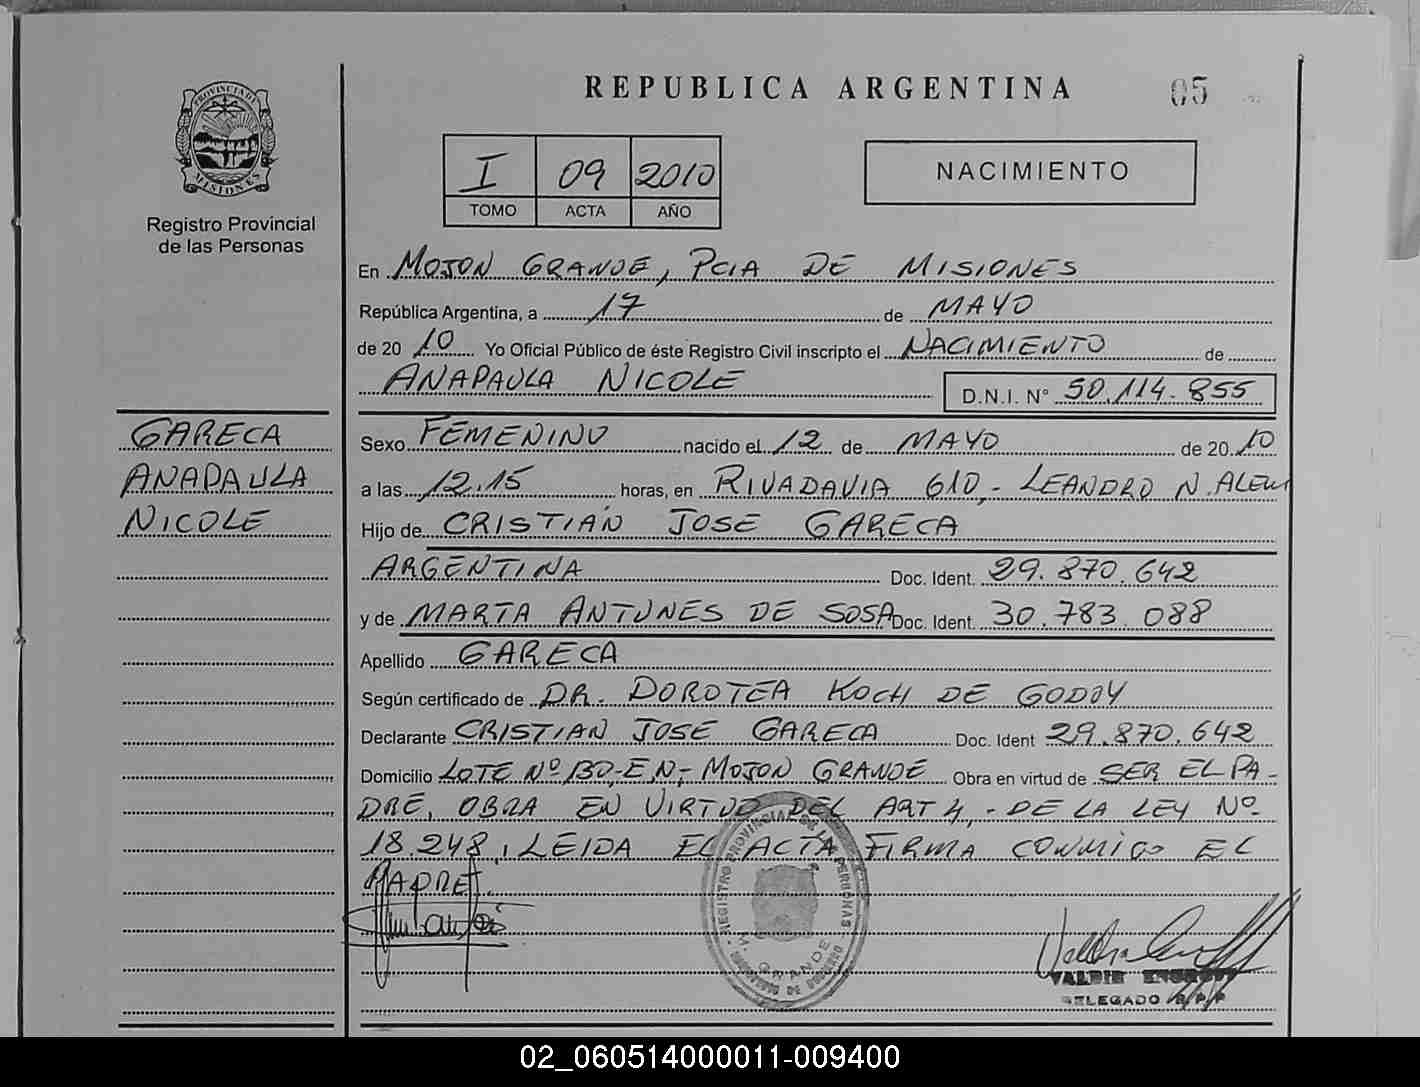 REPUBLICA ARGENTINA
05
PROVINCIA DE
MISIONES
Registro Provincial
de las Personas
I 09 2010
TOMO ACTA AÑO
NACIMIENTO
En MOJON GRANDE, PCIA DE MISIONES
República Argentina, a 17 de MAYO
de 20 10 Yo Oficial Público de éste Registro Civil inscripto el NACIMIENTO de
ANAPAULA NICOLE D.N.I. N° 50.114.855
GARECA
ANAPAULA
NICOLE
Sexo FEMENINO nacido el 12 de MAYO de 20 10
a las 12.15 horas, en RIVADAVIA 610,- LEANDRO N. ALEM
Hijo de CRISTIAN JOSE GARECA
ARGENTINA Doc. Ident. 29.870.642
y de MARTA ANTUNES DE SOSA Doc. Ident. 30.783.088
Apellido GARECA
Según certificado de DR. DOROTEA KOCH DE GODOY
Declarante CRISTIAN JOSE GARECA Doc. Ident 29.870.642
Domicilio LOTE Nº 130,- EN,- MOJON GRANDE Obra en virtud de SER EL PA-
DRE, OBRA EN VIRTUD DEL ART 4,- DE LA LEY Nº
18.248, LEIDA EL ACTA FIRMA CONMIGO EL
PADRE.
REGISTRO PROVINCIAL DE LAS PERSONAS
M. GRANDE
VALDIR
DELEGADO R.P.P
02_060514000011-009400